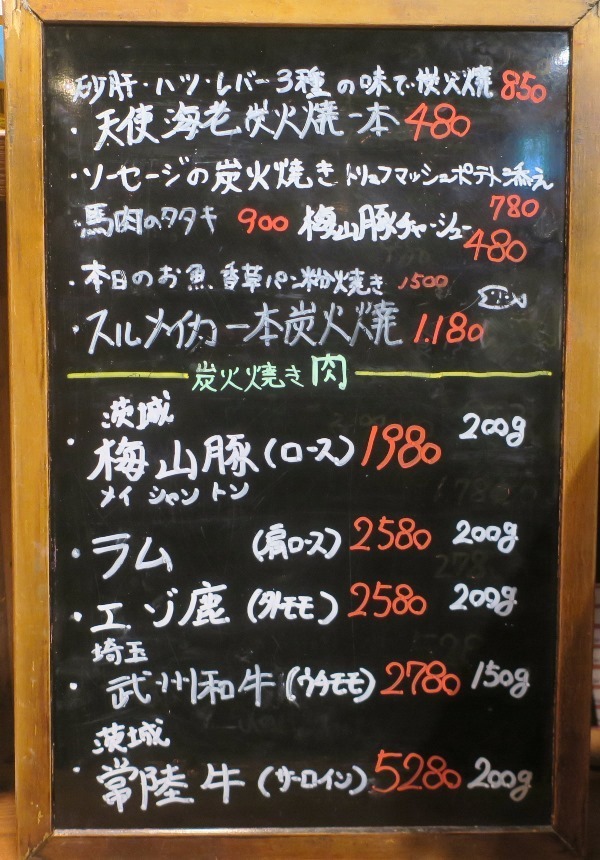 砂肝・ハツ・レバー3種の味で炭火焼 850
・天使海老炭火焼一本 480
・ソーセージの炭火焼き トリュフマッシュポテト添え
780
・馬肉のタタキ 900 梅山豚チャーシュー
480
・本日のお魚 香草パン粉焼き 1500
・スルメイカ一本炭火焼 1.180
炭火焼き肉
茨城
・梅山豚(ロース) 1980 200g
メイ シャン トン
・ラム (肩ロース) 2580 200g
・エゾ鹿 (外モモ) 2580 200g
埼玉
・武州和牛 (ウチモモ) 2780 150g
茨城
・常陸牛 (サーロイン) 5280 200g